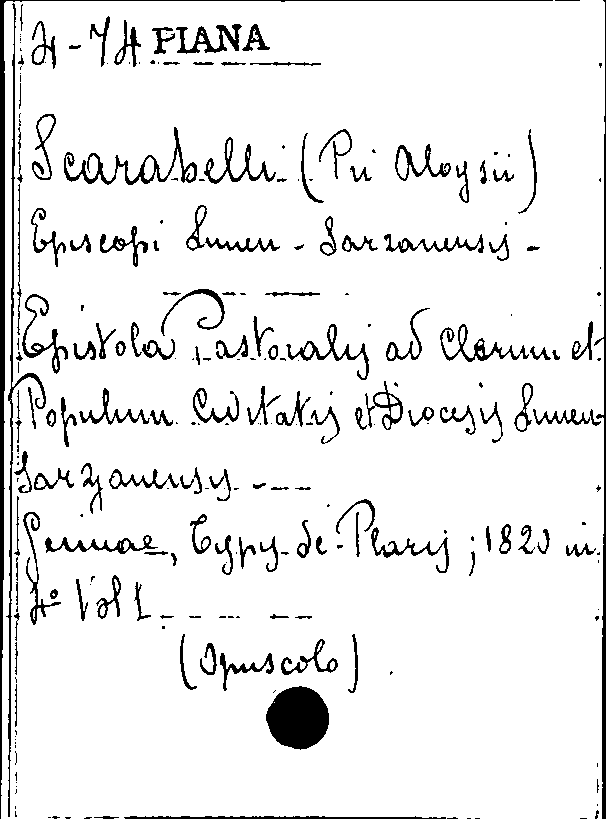 4-74 PIANA
Scarabelli (Pii Aloysii)
Episcopi Lunen-Sarzanensis-
Epistola Pastoralis ad Clerum et
Populum Civitatis et Diocesis Lunen-
Sarzanensis
Genuae, Typis de-Plaris; 1820 in
4° Vol 1
(Opuscolo)